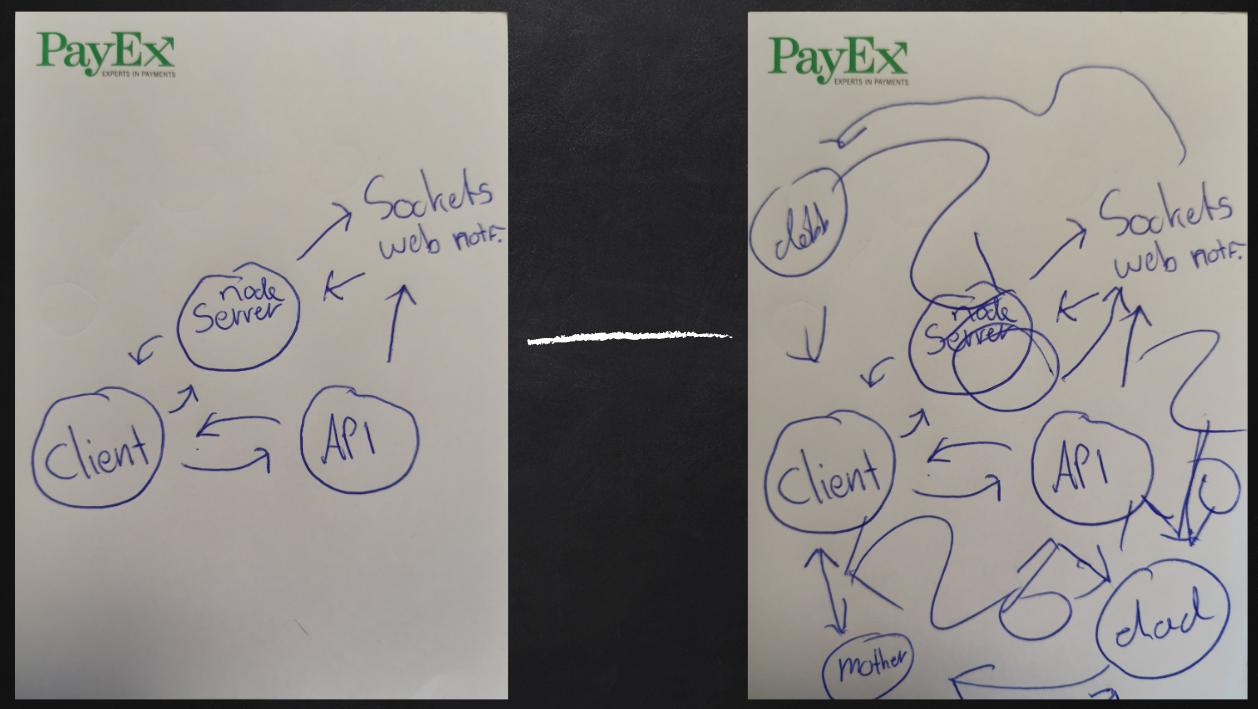 PayEx
EXPERTS IN PAYMENTS
Sockets
web notf.
node
Server
Client
API
PayEx
EXPERTS IN PAYMENTS
Sockets
web notf.
node
Server
Client
API
dad
mother